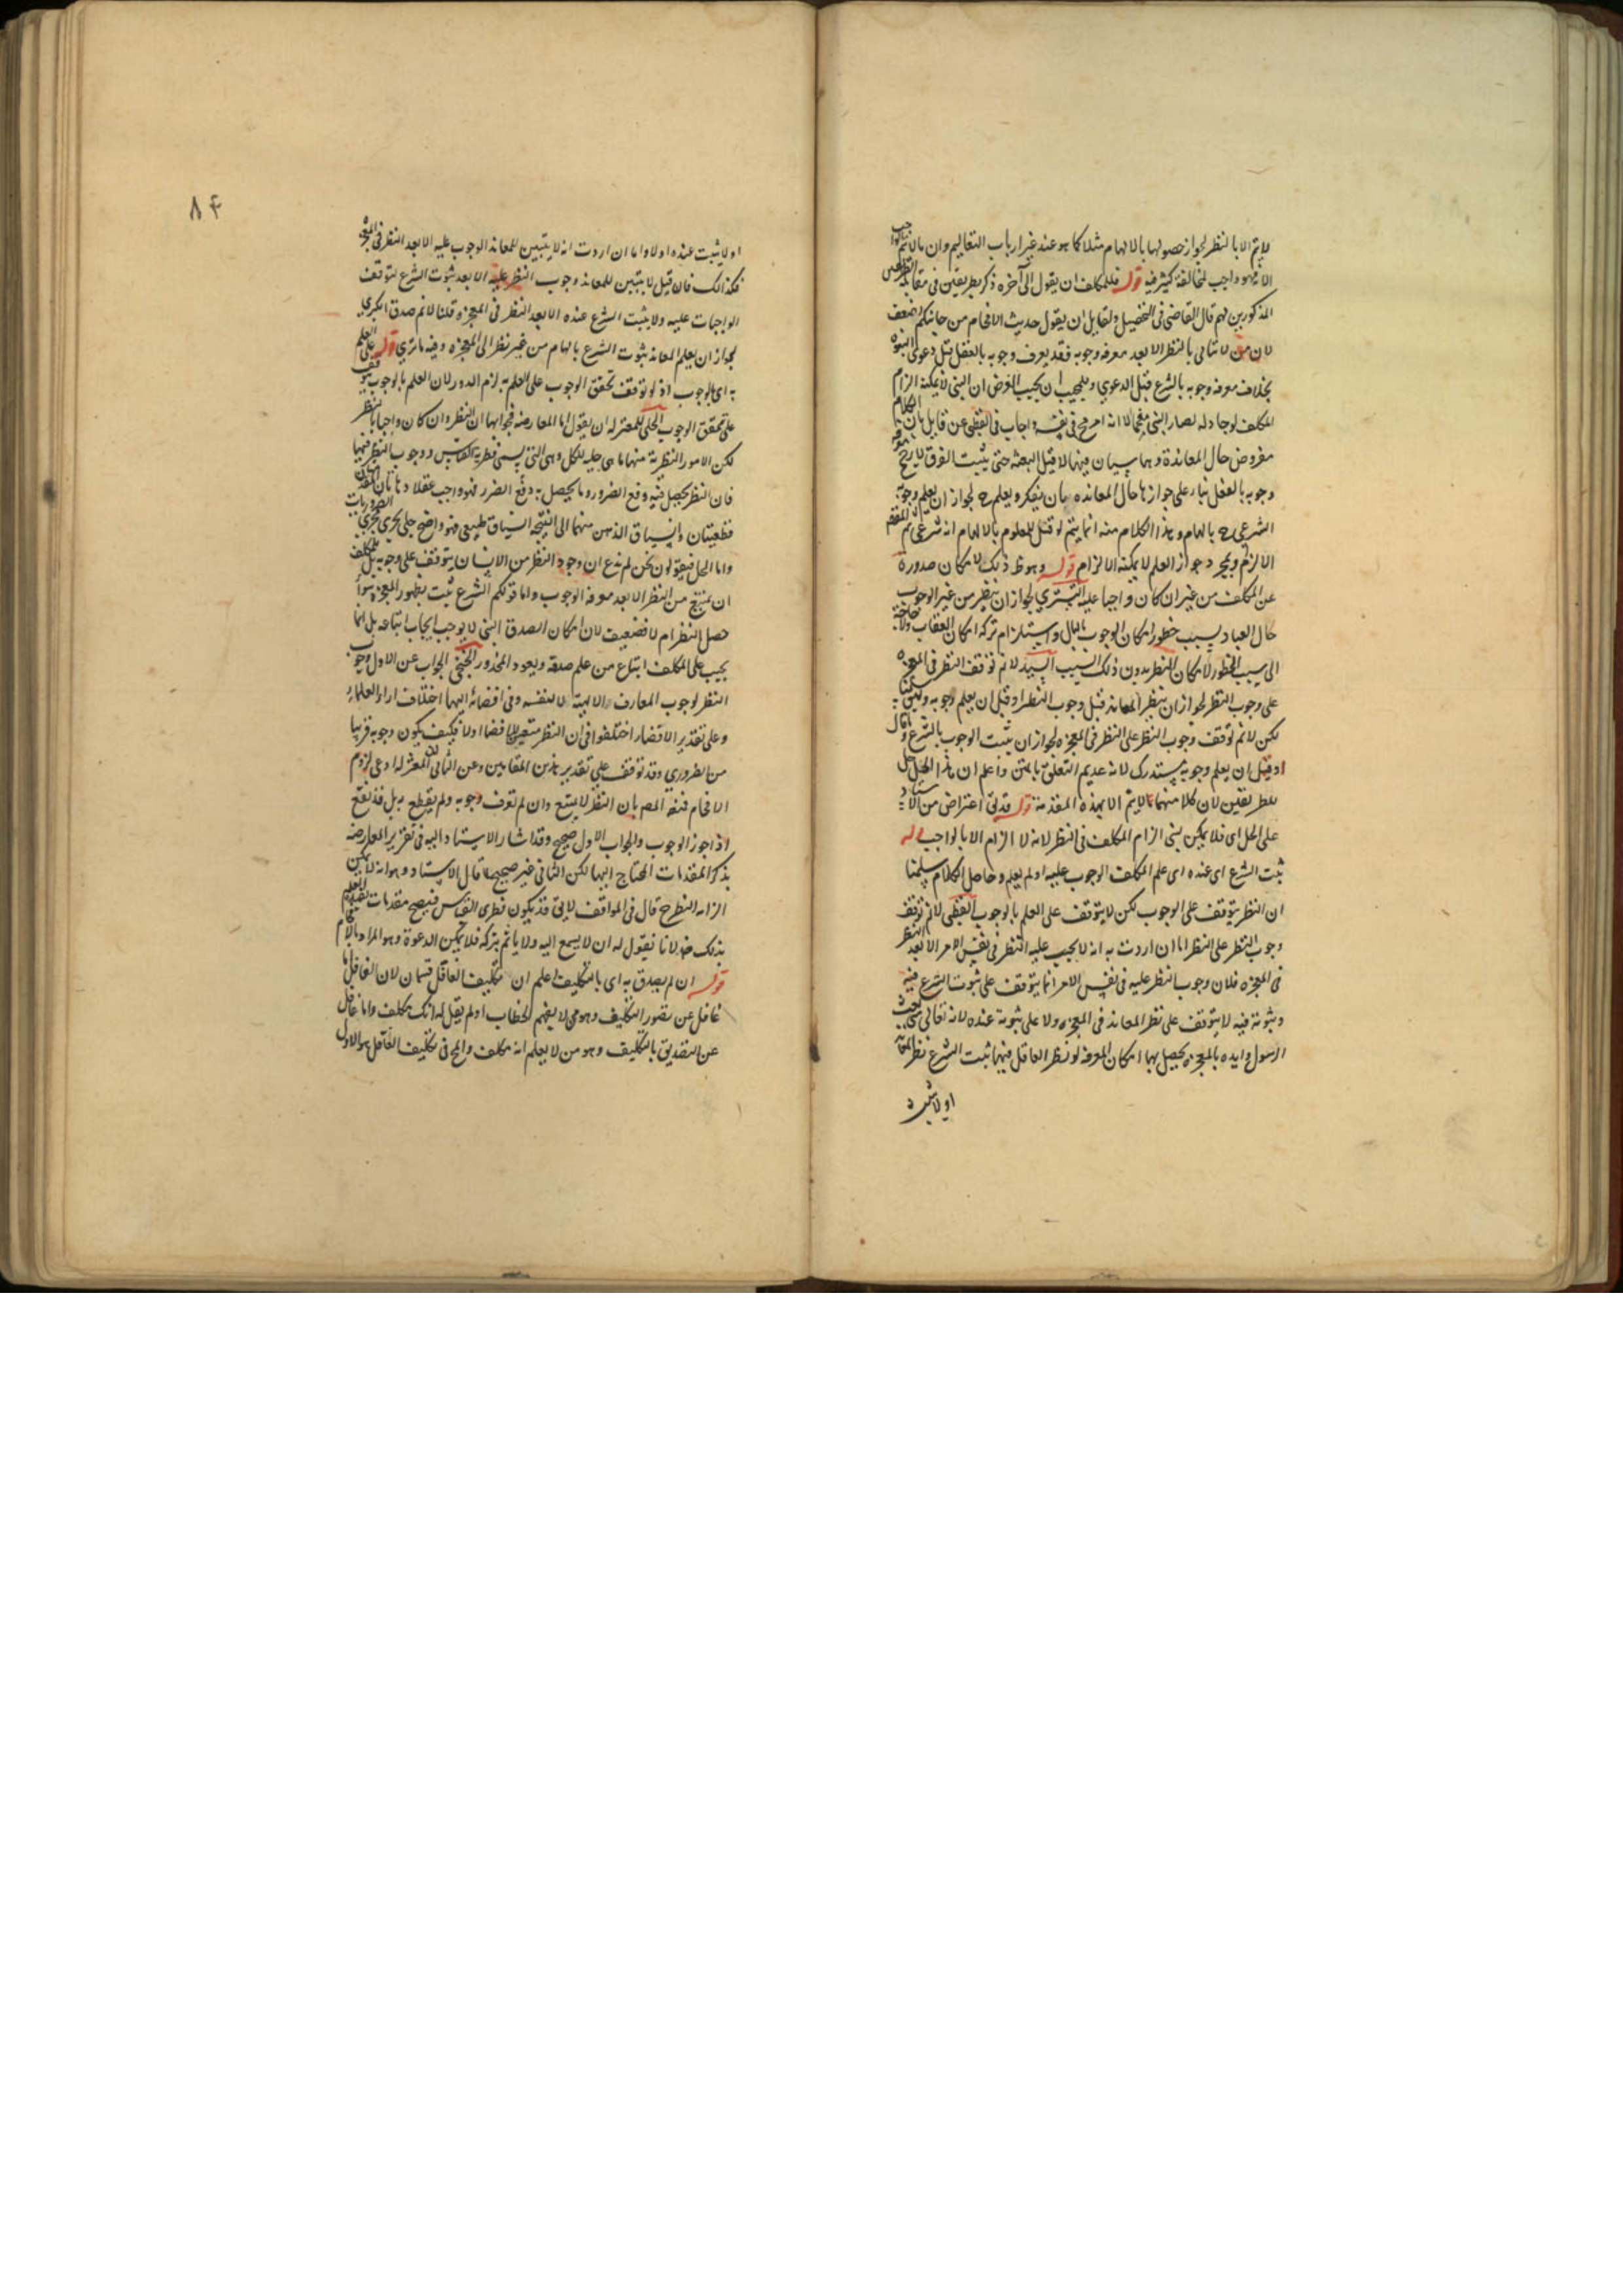 لا يتم الا بالنظر لجواز حصولها بالالهام مثلا كما هو عند غير ارباب التعاليم وان ما لا يتم
الا به فهو واجب لمخالفة كثير فيه قوله فللمكلف ان يقول الى آخره ذكر بطريقين في مقابلة
المذكورين لهم قال القاضي في التحصيل ولقايل ان يقول حديث الافحام من جانبكم اضعف
لان من لا يتأتى بالنظر الا بعد معرفة وجوبه فقد يعرف وجوبه بالعقل قبل دعوى النبوة
بخلاف معرفة وجوبه بالشرع قبل الدعوى وللمجيب ان يجيب الغرض ان النبي لا يمكنه الزام
المكلف لو جادله لصار النبي مفحما لا انه في نفسه واجاب القطبي عن قايل بان الكلام
مفروض حال المعاندة وهما سيان فيها لا قبل البعثة حتى يثبت الفرق لا يصح
وجوبه بالعقل بناء على جوازها حال المعانده بان يتفكر ويعلم ح لجواز ان يعلم وجوبه
الشرعي ح بالهام وهذا الكلام منه انما يتم لو قيل للمعلوم بالالهام انه شرعي ثم المفحم
الالزام وبمجرد جواز العلم لا يمكنه الالزام قوله وهو ظ ذلك لامكان صدوره
عن المكلف من غير ان كان واجبا عليه التستري لجواز ان ينظر من غير الوجوب
حال العباد بسبب خطور امكان الوجوب بالبال واستلزام تركه امكان العقاب ولا حاجة
الى سبب الخطور لامكان النظر بدون ذلك السبب السيد لا نم توقف النظر في المعجزه
على وجوب النظر لجواز ان ينظر المعاند قبل وجوب النظر او قبل ان يعلم وجوبه
لكن لا نم توقف وجوب النظر على النظر في المعجزه لجواز ان يثبت الوجوب بالشرع
او قبل ان يعلم وجوبه مستدرك لانه عديم التعلق بالمتن واعلم ان هذا الحل
للطريقين لان كلا منهما لا يتم الا بهذه المقدمة قوله قد اعتراض من الاستاد
على الحل اى فلا يمكن نبي الزام المكلف في النظر لانه لا الزام الا بالواجب
ثبت الشرع اى عنده اى علم المكلف الوجوب عليه او لم يعلم وحاصل الكلام سلمنا
ان النظر يتوقف على الوجوب لكن لا يتوقف على العلم بالوجوب القطبي لا نم توقف
وجوب النظر على النظر اما ان اردت به انه لا يجب عليه النظر في نفس الامر الا بعد النظر
في المعجزه فلان وجوب النظر عليه في نفس الامر انما يتوقف على ثبوت الشرع فيه
وثبوته فيه لا يتوقف على نظر المعاند في المعجزه ولا على ثبوته عنده لانه تعالى
الرسول وايده بالمعجزه يحصل بها امكان المعرفه لو نظر العاقل فيها ثبت الشرع نظر
او لا يثبت
۸۴
او لا يثبت عنده او لا واما ان اردت انه لا يتبين للمعاند الوجوب عليه الا بعد النظر في
فكذلك فان قيل لا يتبين للمعاند وجوب النظر عليه الا بعد ثبوت الشرع لتوقف
الواجبات عليه ولا يثبت الشرع عنده الا بعد النظر في المعجزه قلنا لا نم صدق الكبرى
لجواز ان يعلم المعاند ثبوت الشرع بالهام من غير نظر الى المعجزه وفيه ما ترى قوله على العلم
به اى بالوجوب اذ لو توقف تحقق الوجوب على العلم به لزم الدور لان العلم بالوجوب
على تحقق الوجوب الحلي للمعتزله ان يقول اما المعارضة فجوابها ان النظر وان كان واجبا بالنظر
لكن الامور النظرية منها ما هى جليه للكل وهي التي يسمى فطرية القياس ووجوب النظر منها
فان النظر يحصل فيه دفع الضرر وما يحصل به دفع الضرر فهو واجب عقلا
قطعيتان وانسياق الذهن منهما الى النتيجة انسياق طبيعي فهو واضح جلي يجري مجرى الضروريات
واما الحل فيقولون نحن لم ندع ان وجود النظر من الانسان يتوقف على وجوبه بل للمكلف
ان يمتنع من النظر الا بعد معرفة الوجوب واما قولكم الشرع ثبت بظهور المعجزه سواء
حصل النظر ام لا فضعيف لان امكان الصدق النبي لا يوجب ايجاب اتباعه بل انما
يجب على المكلف اتباع من علم صدقه ويعود المحذور الخنجي الجواب عن الاول وجوب
النظر لوجوب المعارف الالهية لا لنفسه وفي افضائه اليها اختلاف اراء العلماء
وعلى تقدير الافضاء اختلفوا في ان النظر متعين للافضاء او لا فكيف يكون وجوبه قريبا
من الضروري وقد توقف على تقدير هذين المقامين وعن الثاني ان المعتزله ادعى لزوم
الافحام فنقضه المص بان النظر لا يمتنع وان لم تعرف وجوبه ولم يقطع به بل قد يقع
اذا جوز الوجوب والجواب الاول صحيح وقد اشار الاستاد اليه في تقرير المعارضه
بذكر المقدمات المحتاج اليها لكن الثاني غير صحيح قال الاستاد وهو انه لا يمكن
الزامه النظر ح قال في المواقف لا يق قد يكون فطرى القياس فيصح مقدمات
بذلك ضرلانا نقول له ان لا يسمع اليه ولا ياثم بتركه فلا يمكن الدعوة وهو المراد
قوله ان لم يصدق به اى بالتكليف اعلم ان تكليف الغافل قسمان لان الغافل اما
غافل عن تصور التكليف وهو من لا يفهم الخطاب او لم يقل له انك مكلف واما غافل
عن التصديق بالتكليف وهو من لا يعلم انه مكلف والمح في تكليف الغافل هو الاول